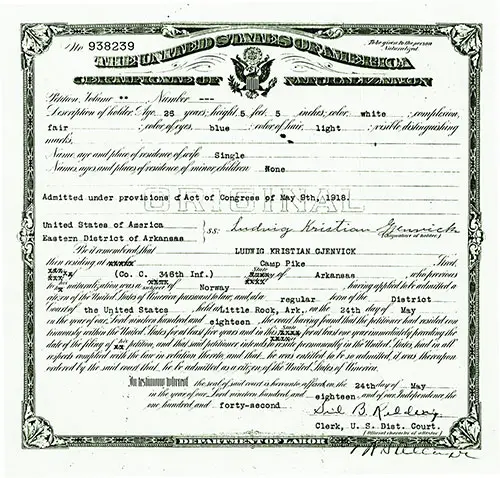 No. 938239
To be given to the person Naturalized
THE UNITED STATES OF AMERICA
CERTIFICATE OF NATURALIZATION
Petition, Volume -- Number ---
Description of holder: Age, 26 years; height, 5 feet, 5 inches; color, white; complexion,
fair; color of eyes, blue; color of hair, light; visible distinguishing
marks,
Name, age and place of residence of wife Single
Names, ages and places of residence of minor children None
ORIGINAL
Admitted under provisions of Act of Congress of May 9th, 1918.
United States of America
Eastern District of Arkansas
ss: Ludwig Kristian Gjenvick
(Signature of holder)
Be it remembered, that LUDWIG KRISTIAN GJENVICK
then residing at Camp Pike
(Co. C. 346th Inf.) of Arkansas, who previous
to his naturalization was a subject of Norway, having applied to be admitted a
citizen of the United States of America pursuant to law, and at a regular term of the District
Court of the United States held at Little Rock, Ark. on the 24th day of May
in the year of our Lord nineteen hundred and eighteen the court having found that the petitioner had resided con-
tinuously within the United States for at least five years and in this State for at least one year immediately preceding the
date of the filing of his petition, and that said petitioner intends to reside permanently in the United States, had in all
respects complied with the law in relation thereto, and that he was entitled to be so admitted, it was thereupon
ordered by the said court that he be admitted as a citizen of the United States of America.
In testimony whereof the seal of said court is hereunto affixed on the 24th day of May
in the year of our Lord nineteen hundred and eighteen and of our Independence the
one hundred and forty-second
Sid B. Redding
Clerk, U. S. Dist. Court.
(Official character of attestor)
DEPARTMENT OF LABOR